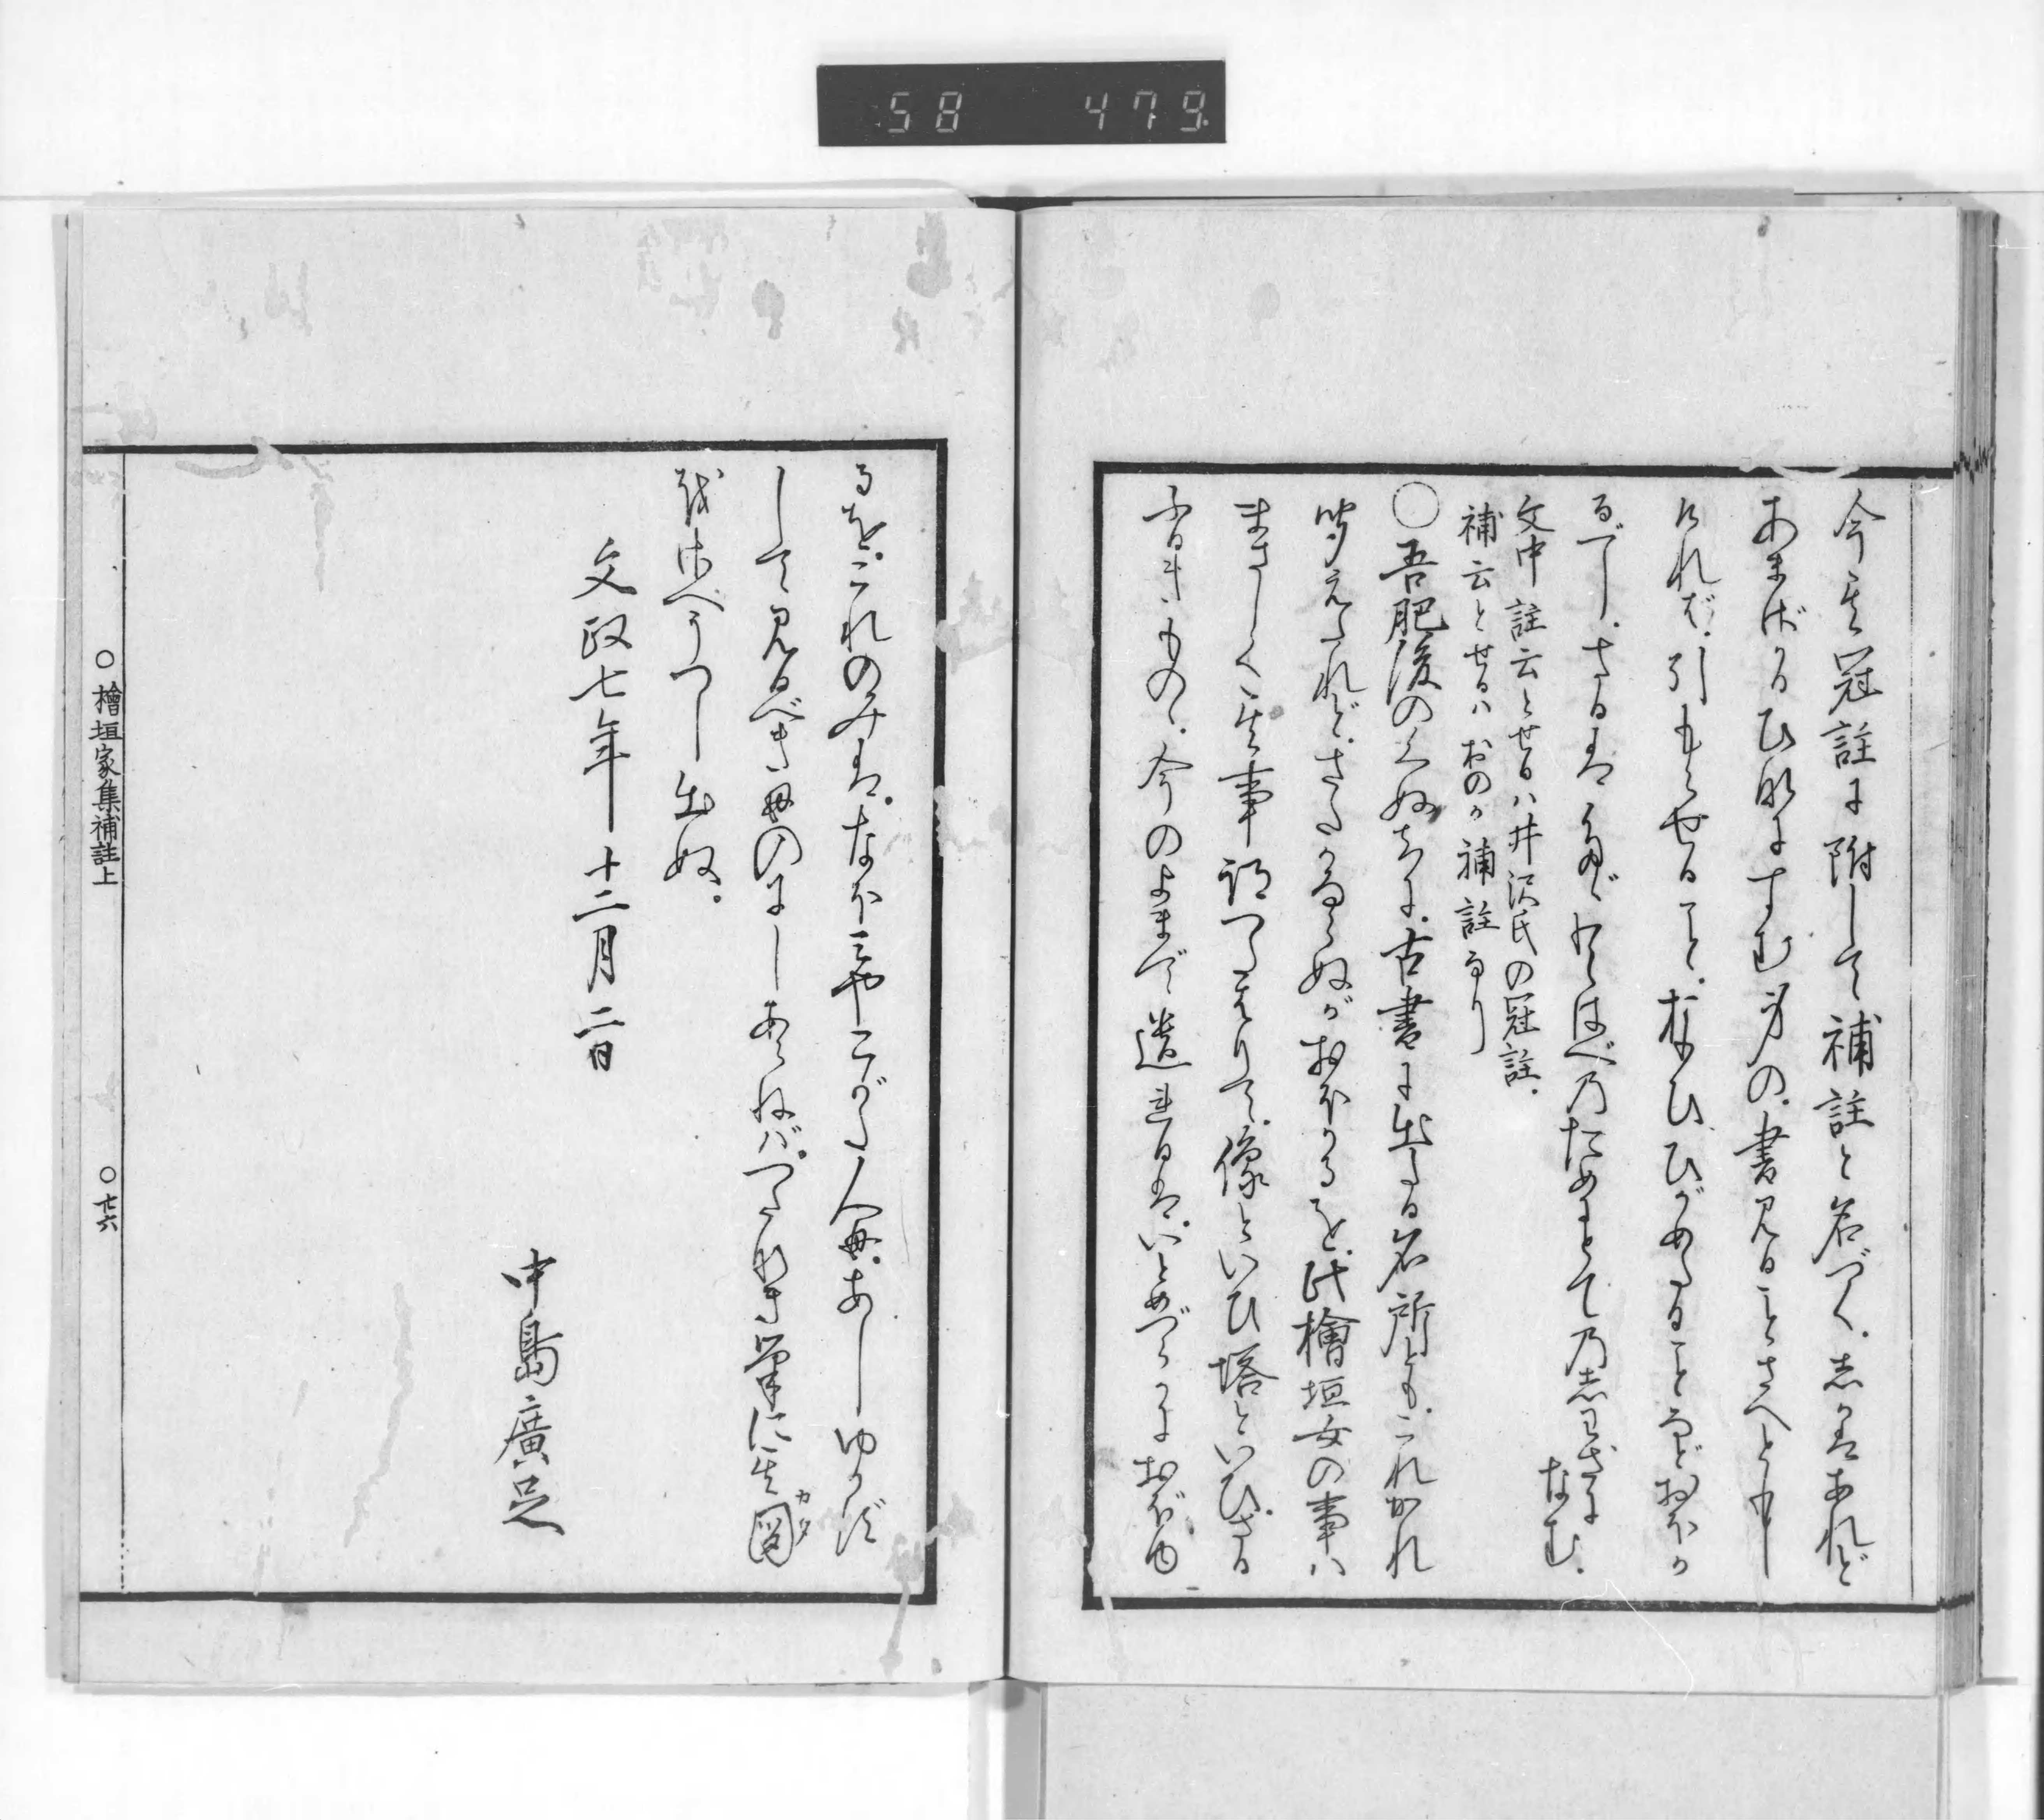 58 479
今其冠註に附して補註と名づく。しかはあれど
あまざかるひなにすむ身の。書見ることさへともし
ければ。引もらせること。おもひひがめたることなどおほか
るべし。さるはただわらはべのためにとてのしわざに
なむ。
文中註云とせるハ井沢氏の冠註。
補云とせるハおのが補註なり
○吾肥後のくぬちに。古書に出たる名所ども。これかれ
聞えたれど。さだかならぬがおほかるを。此檜垣女の事ハ
まさしく其事跡つたはりて。像といひ塔といひ。さる
ふるきもの。今のよまで遺れるは。いとめづらかにおぼゆ
るを。これのみは。なほみやこがた人も。あしゆかず
して見るべきものにしあらねば。つたなき筆に其図
カタ
をさへうつし出ぬ。
文政七年十二月二日
中島廣足
○檜垣家集補註上 ○廿六